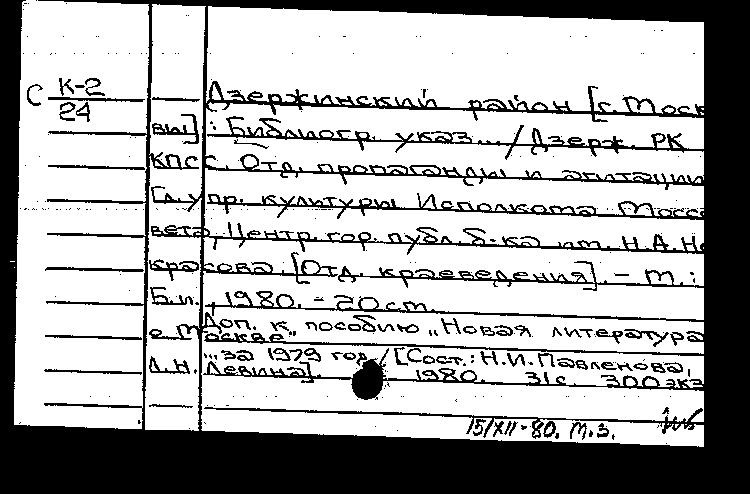 С К-2
24
Дзержинский район [г. Моск
вы] : Библиогр. указ... / Дзерж. РК
КПСС. Отд. пропаганды и агитации
Гл. упр. культуры Исполкома Моссо
вета, Центр. гор. публ. б-ка им. Н.А. Не
красова. [Отд. краеведения]. – М. :
Б.и., 1980. - 20 см.
Доп. к пособию „Новая литература
о Москве"
...за 1979 год / [Сост.: Н.И. Павленова,
Л.Н. Левина]. 1980. 31 с. 300 экз
15/XII-80. м.з.